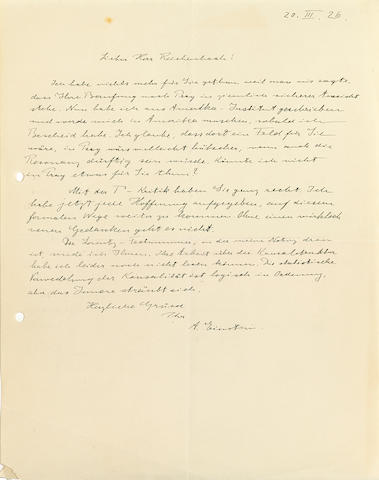 20. III. 26.
Lieber Herr Reichenbach!
Ich habe nichts mehr für Sie gethan weil man mir sagte,
dass Ihre Berufung nach Prag in ziemlich sicherer Aussicht
stehe. Nun habe ich ans Amerika-Institut geschrieben
und werde mich in Amerika umsehen, sobald ich
Bescheid habe. Ich glaube, dass dort ein Feld für Sie
wäre, in Prag wärs vielleicht hübscher, wenn auch die
Resonanz dürftig sein würde. Könnte ich nicht
in Prag etwas für Sie thun?
Mit der Γ-Kritik haben Sie ganz recht. Ich
habe jetzt jede Hoffnung aufgegeben, auf diesem
formalen Wege weiter zu kommen. Ohne einen wirklich
neuen Gedanken geht es nicht.
Die Lorentz-, in der meine Notiz drin
ist, sende ich Ihnen. Ihre Arbeit über die
habe ich leider noch nicht lesen können. Die statistische
der Kausalität ist logisch in Ordnung,
aber das Innere sträubt sich.
Herzliche Grüsse
Ihr
A. Einstein.